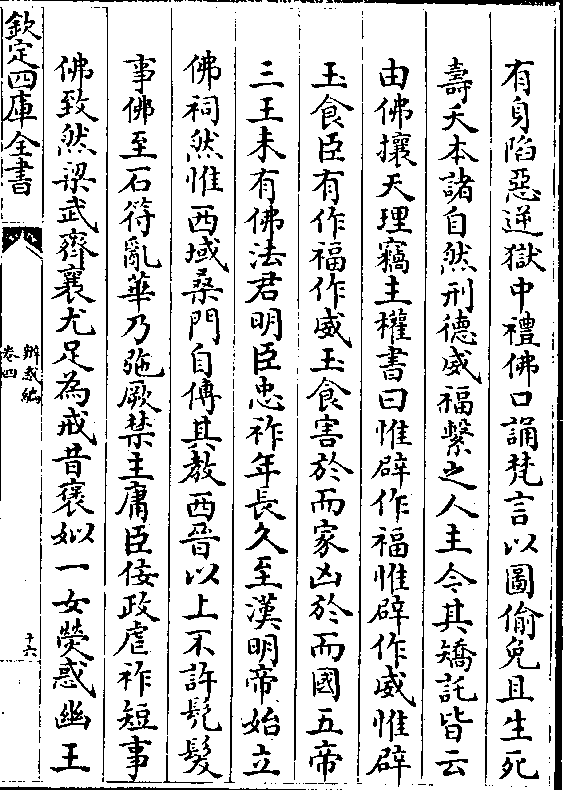 有身陷惡逆獄中禮佛口誦梵言以圖偷免且生死
壽夭本諸自然刑德威福繫之人主今其矯託皆云
由佛攘天理竊主權書曰惟辟作福惟辟作威惟辟
玉食臣有作福作威玉食害於而家凶於而國五帝
三王未有佛法君明臣忠祚年長久至漢明帝始立
佛祠然惟西域桑門自傳其教西晉以上不許髠髮
事佛至石符亂華乃弛厥禁主庸臣佞政虐祚短事
佛致然梁武齊襄尤足為戒昔褒姒一女熒惑幽王
欽定四庫全書
辨惑編
卷四
十六